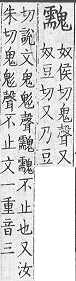 䰰
奴侯切鬼聲又
奴豆切又乃豆
切說文鬼鬽聲䰰不止也又汝
朱切鬼鬽聲不止文一重音三